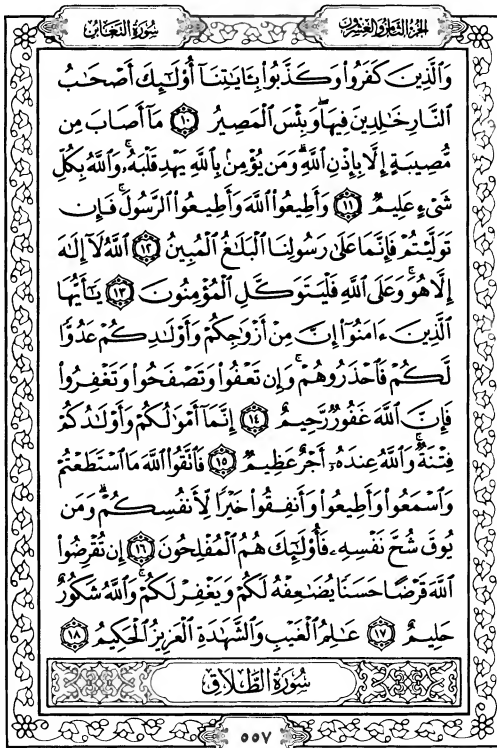 الجزء الثامن والعشرون
سورة التغابن
وَٱلَّذِينَ كَفَرُوا۟ وَكَذَّبُوا۟ بِـَٔايَـٰتِنَآ أُو۟لَـٰٓئِكَ أَصْحَـٰبُ
ٱلنَّارِ خَـٰلِدِينَ فِيهَا ۖ وَبِئْسَ ٱلْمَصِيرُ ١٠ مَآ أَصَابَ مِن
مُّصِيبَةٍ إِلَّا بِإِذْنِ ٱللَّهِ ۗ وَمَن يُؤْمِنۢ بِٱللَّهِ يَهْدِ قَلْبَهُۥ ۚ وَٱللَّهُ بِكُلِّ
شَىْءٍ عَلِيمٌ ١١ وَأَطِيعُوا۟ ٱللَّهَ وَأَطِيعُوا۟ ٱلرَّسُولَ ۚ فَإِن
تَوَلَّيْتُمْ فَإِنَّمَا عَلَىٰ رَسُولِنَا ٱلْبَلَـٰغُ ٱلْمُبِينُ ١٢ ٱللَّهُ لَآ إِلَـٰهَ
إِلَّا هُوَ ۚ وَعَلَى ٱللَّهِ فَلْيَتَوَكَّلِ ٱلْمُؤْمِنُونَ ١٣ يَـٰٓأَيُّهَا
ٱلَّذِينَ ءَامَنُوٓا۟ إِنَّ مِنْ أَزْوَٰجِكُمْ وَأَوْلَـٰدِكُمْ عَدُوًّا
لَّكُمْ فَٱحْذَرُوهُمْ ۚ وَإِن تَعْفُوا۟ وَتَصْفَحُوا۟ وَتَغْفِرُوا۟
فَإِنَّ ٱللَّهَ غَفُورٌ رَّحِيمٌ ١٤ إِنَّمَآ أَمْوَٰلُكُمْ وَأَوْلَـٰدُكُمْ
فِتْنَةٌ ۚ وَٱللَّهُ عِندَهُۥٓ أَجْرٌ عَظِيمٌ ١٥ فَٱتَّقُوا۟ ٱللَّهَ مَا ٱسْتَطَعْتُمْ
وَٱسْمَعُوا۟ وَأَطِيعُوا۟ وَأَنفِقُوا۟ خَيْرًا لِّأَنفُسِكُمْ ۗ وَمَن
يُوقَ شُحَّ نَفْسِهِۦ فَأُو۟لَـٰٓئِكَ هُمُ ٱلْمُفْلِحُونَ ١٦ إِن تُقْرِضُوا۟
ٱللَّهَ قَرْضًا حَسَنًا يُضَـٰعِفْهُ لَكُمْ وَيَغْفِرْ لَكُمْ ۚ وَٱللَّهُ شَكُورٌ
حَلِيمٌ ١٧ عَـٰلِمُ ٱلْغَيْبِ وَٱلشَّهَـٰدَةِ ٱلْعَزِيزُ ٱلْحَكِيمُ ١٨
سُورَةُ الطَّلَاقِ
٥٥٧